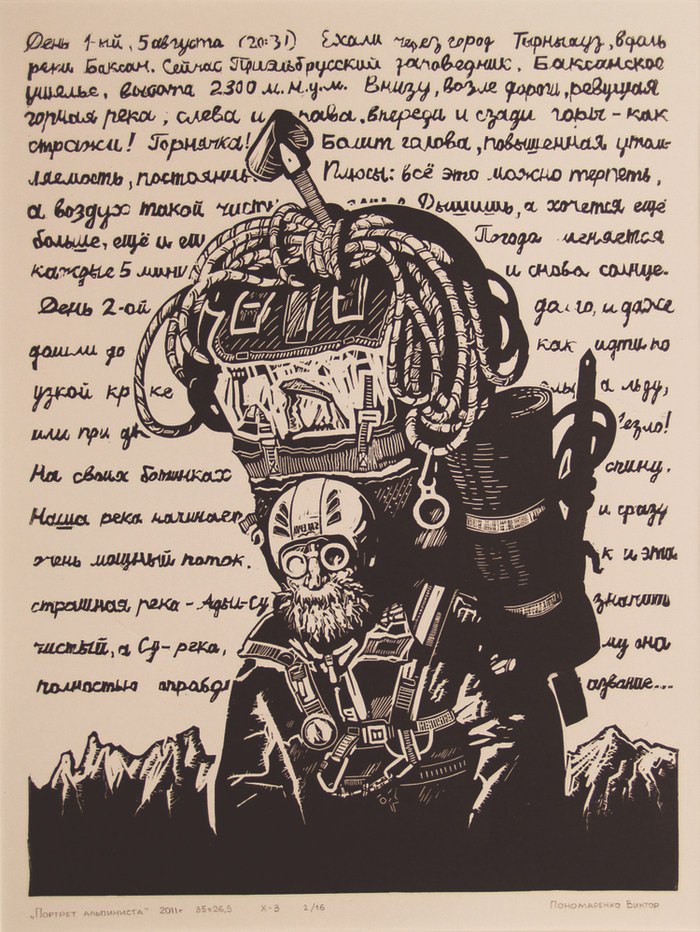 День 1-ый, 5 августа (20:31) Ехали через город Тырныауз, вдоль
реки Баксан. Сейчас Приэльбрусский заповедник, Баксанское
ущелье, высота 2300 м.н.у.м. Внизу, возле дороги, ревущая
горная река, слева и права, впереди и сзади горы - как
стражи! Горнячка! Болит голова, повышенная утом-
ляемость, постоянн Плюсы: всё это можно терпеть,
а воздух такой чисты Дышишь, а хочется ещё
больше, ещё и ещ Погода меняется
каждые 5 мину и снова солнце.
День 2-ой и даже
дошли до как идти по
узкой кр ке а льду,
или при дв езло!
На своих ботинках спину.
Наша река начинает и сразу
очень мощный поток. к и эта
страшная река - Адыл-Су значить
чистый, а Су - река, му она
полностью оправд азвание...
ЗУБР
„Портрет альпиниста" 2011г 35х26,5 X-3 2/16 Пономаренко Виктор